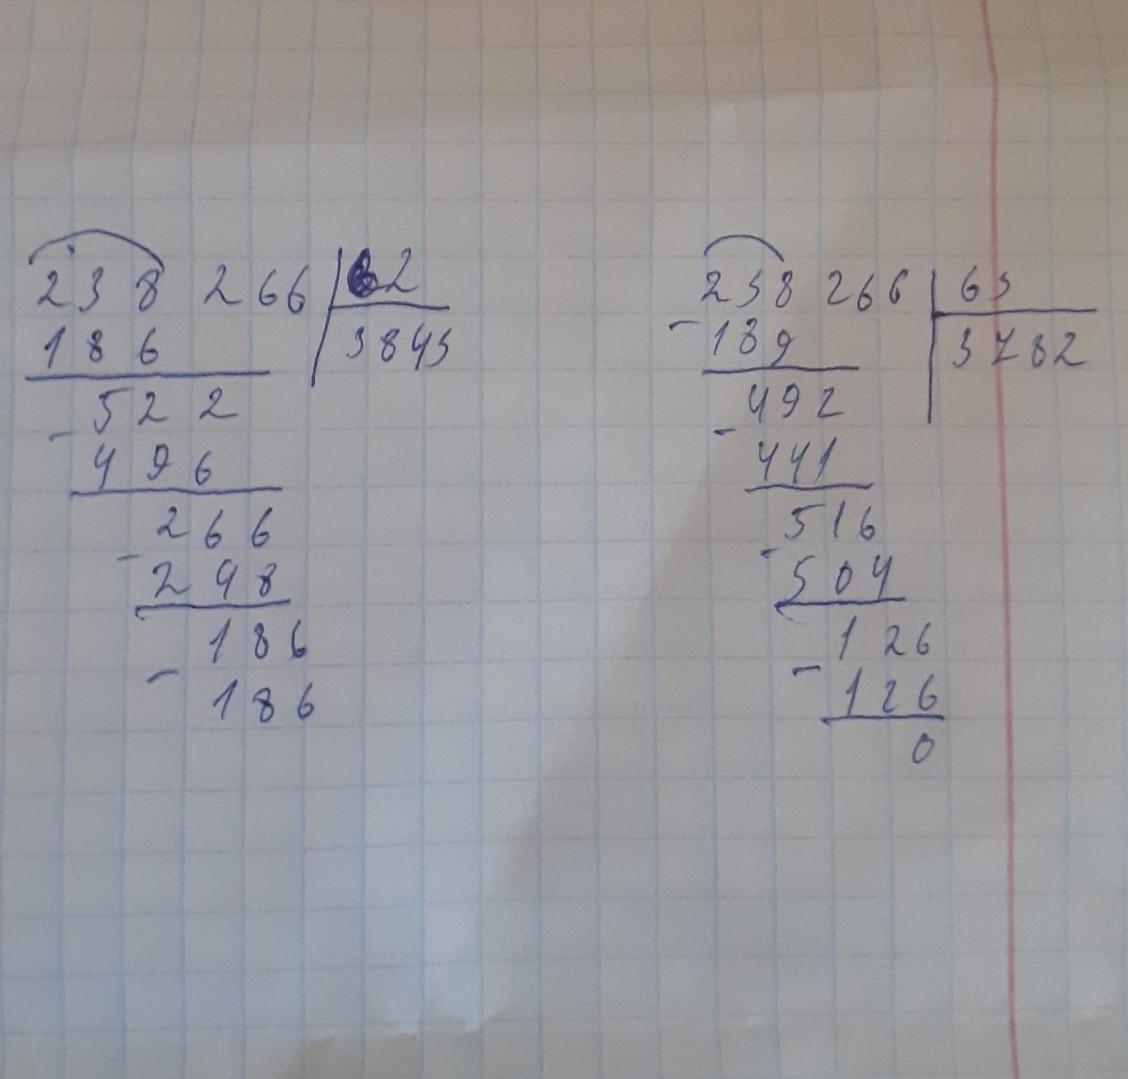 238 266 62
186 3843
522
- 496
266
- 248
186
- 186
238 266 63
- 189 3782
492
- 441
516
- 504
126
- 126
0